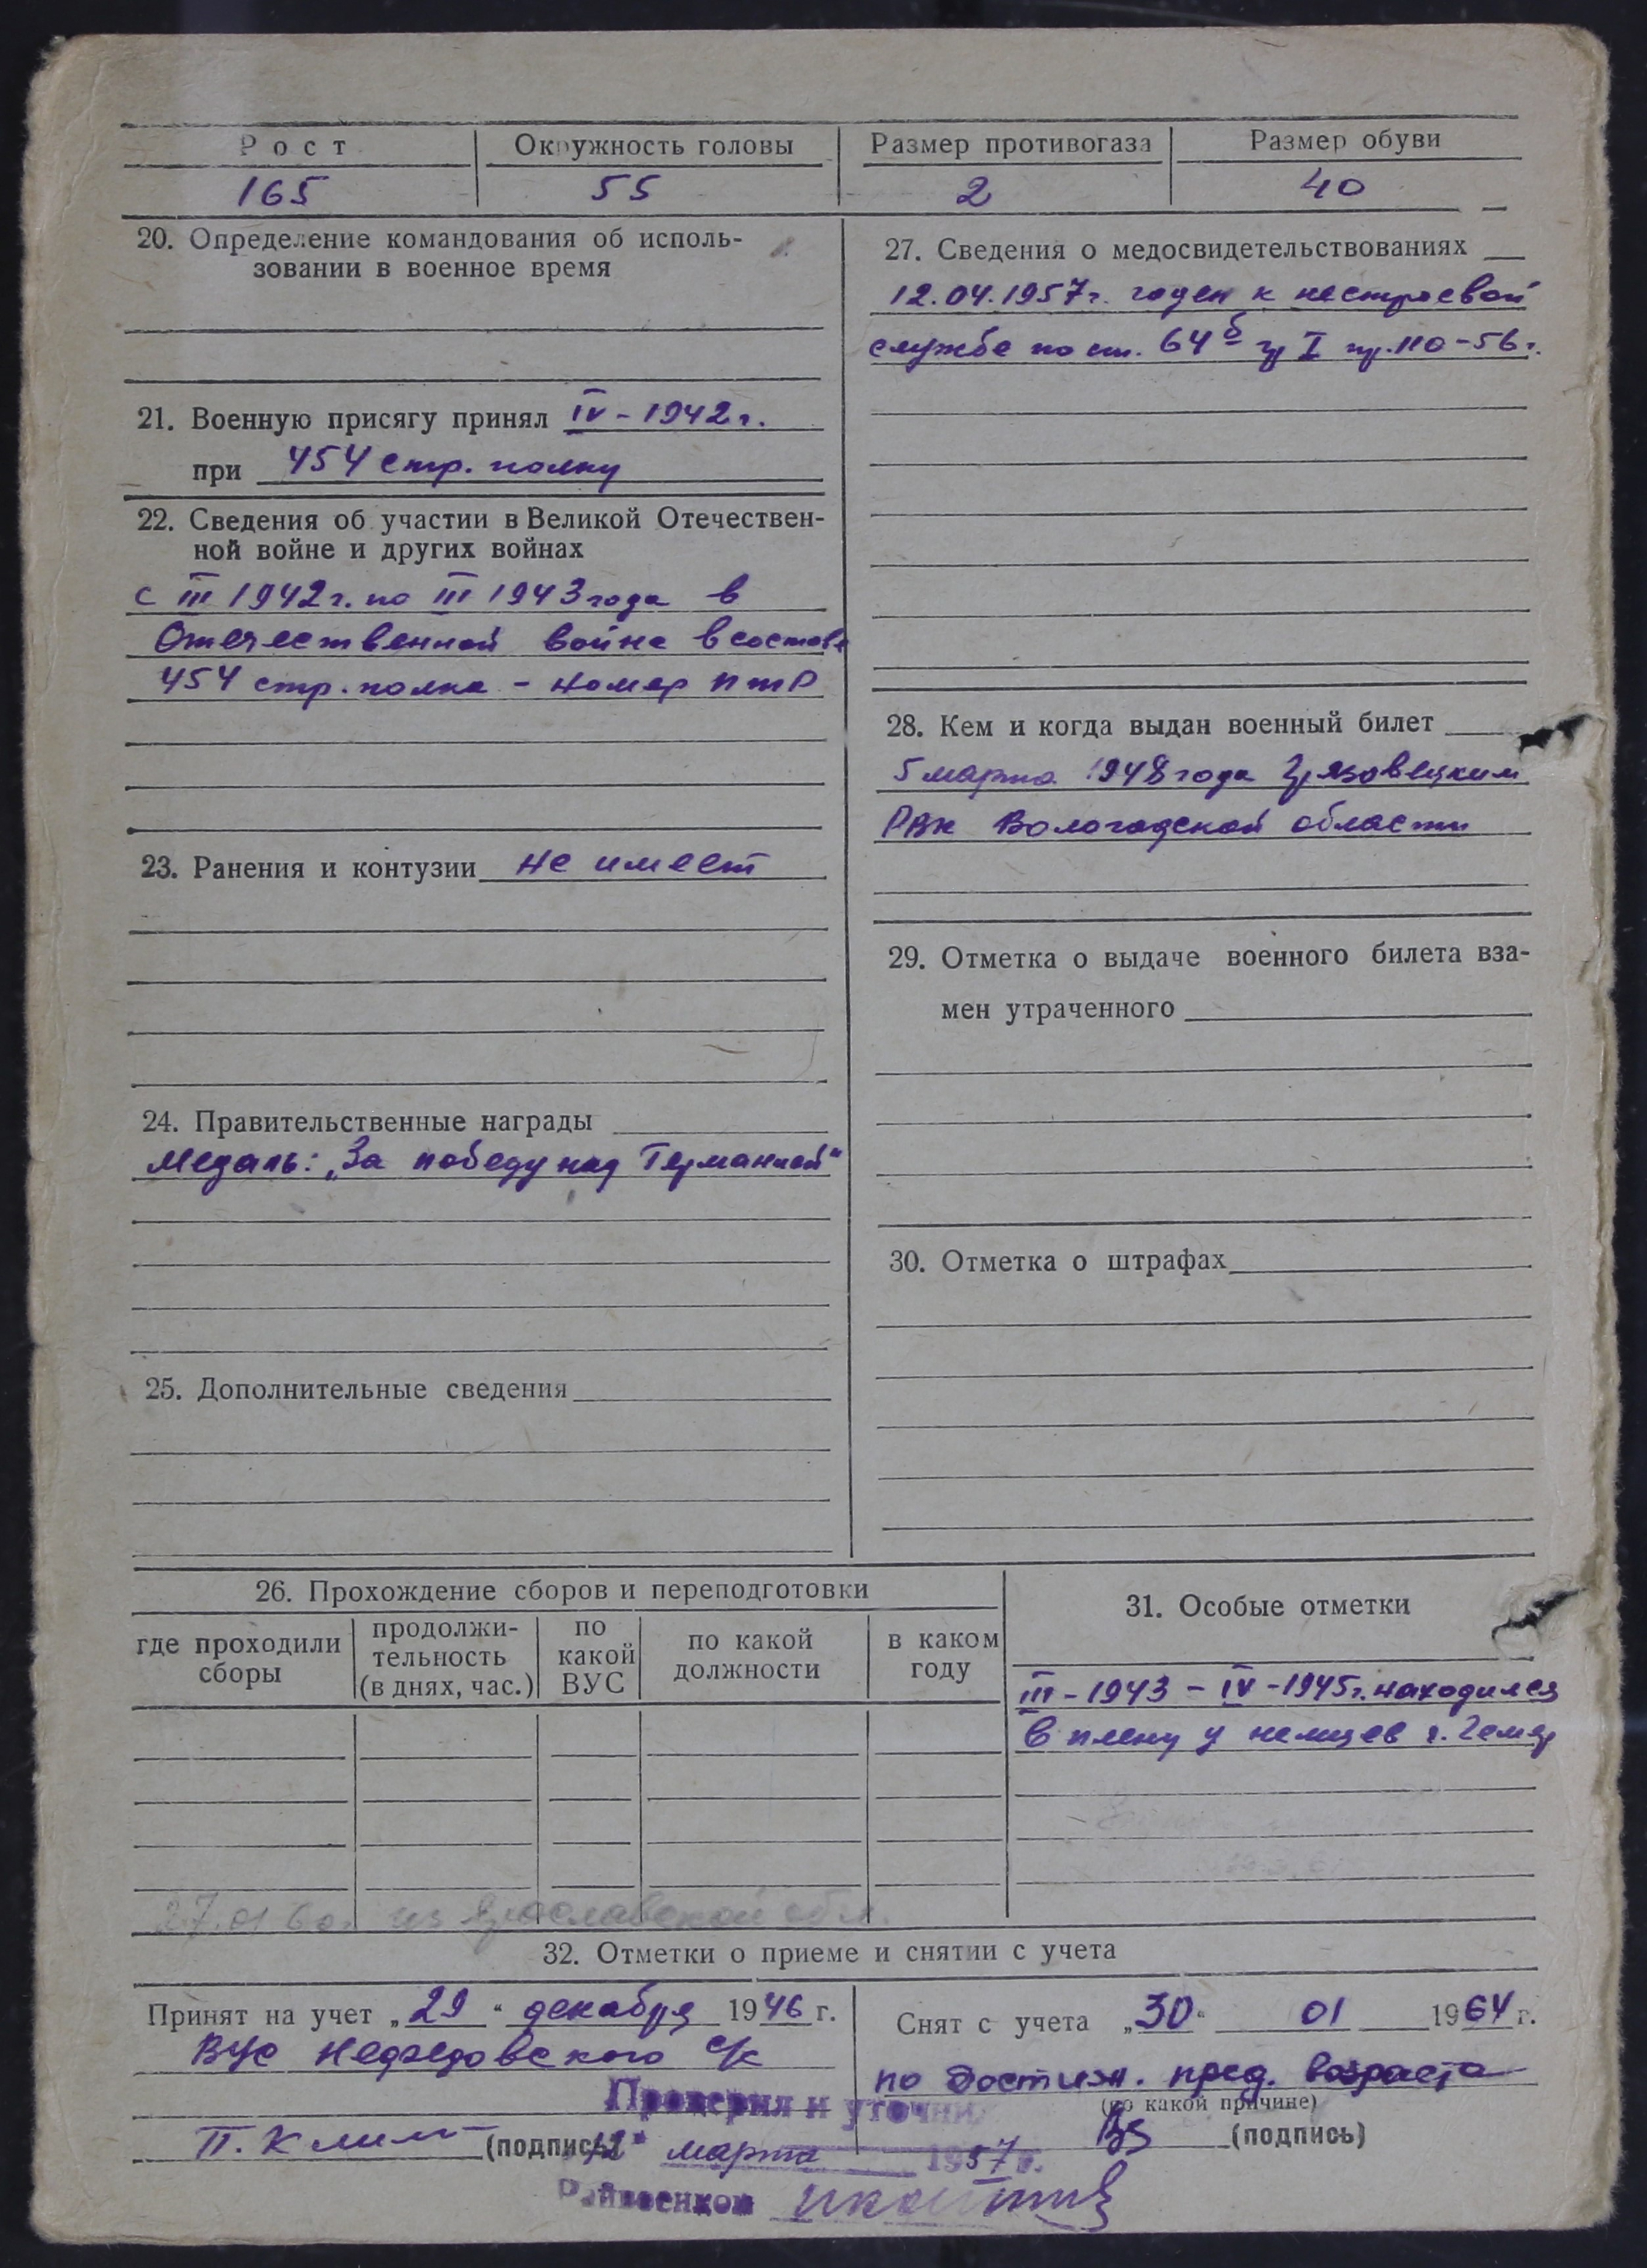 Рост
Окружность головы
Размер противогаза
Размер обуви
165
55
2
40
20. Определение командования об исполь-
зовании в военное время
21. Военную присягу принял IV - 1942 г.
при 454 стр. полку
22. Сведения об участии в Великой Отечествен-
ной войне и других войнах
с III 1942 г. по III 1943 года в
Отечественной войне в составе
454 стр. полка - номер ПТР
23. Ранения и контузии не имеет
24. Правительственные награды
Медаль: „За победу над Германией"
25. Дополнительные сведения
27. Сведения о медосвидетельствованиях
12.04.1957 г. годен к нестроевой
службе по ст. 64б гр I пр. 110-56 г.
28. Кем и когда выдан военный билет
5 марта 1948 года Грязовецким
РВК Вологодской области
29. Отметка о выдаче военного билета вза-
мен утраченного
30. Отметка о штрафах
26. Прохождение сборов и переподготовки
где проходили
сборы
продолжи-
тельность
(в днях, час.)
по
какой
ВУС
по какой
должности
в каком
году
31. Особые отметки
III - 1943 - IV - 1945 г. находился
в плену у немцев г.
27.01.60г. из Ярославской обл.
32. Отметки о приеме и снятии с учета
Принят на учет „29" декабря 1946 г.
ВУС с/с
П. Клим (подпись)
Снят с учета „30" 01 1964 г.
по достиж. пред. возраста
(по какой причине)
(подпись)
Проверил и уточнил
12" марта 1957 г.
Райвоенком